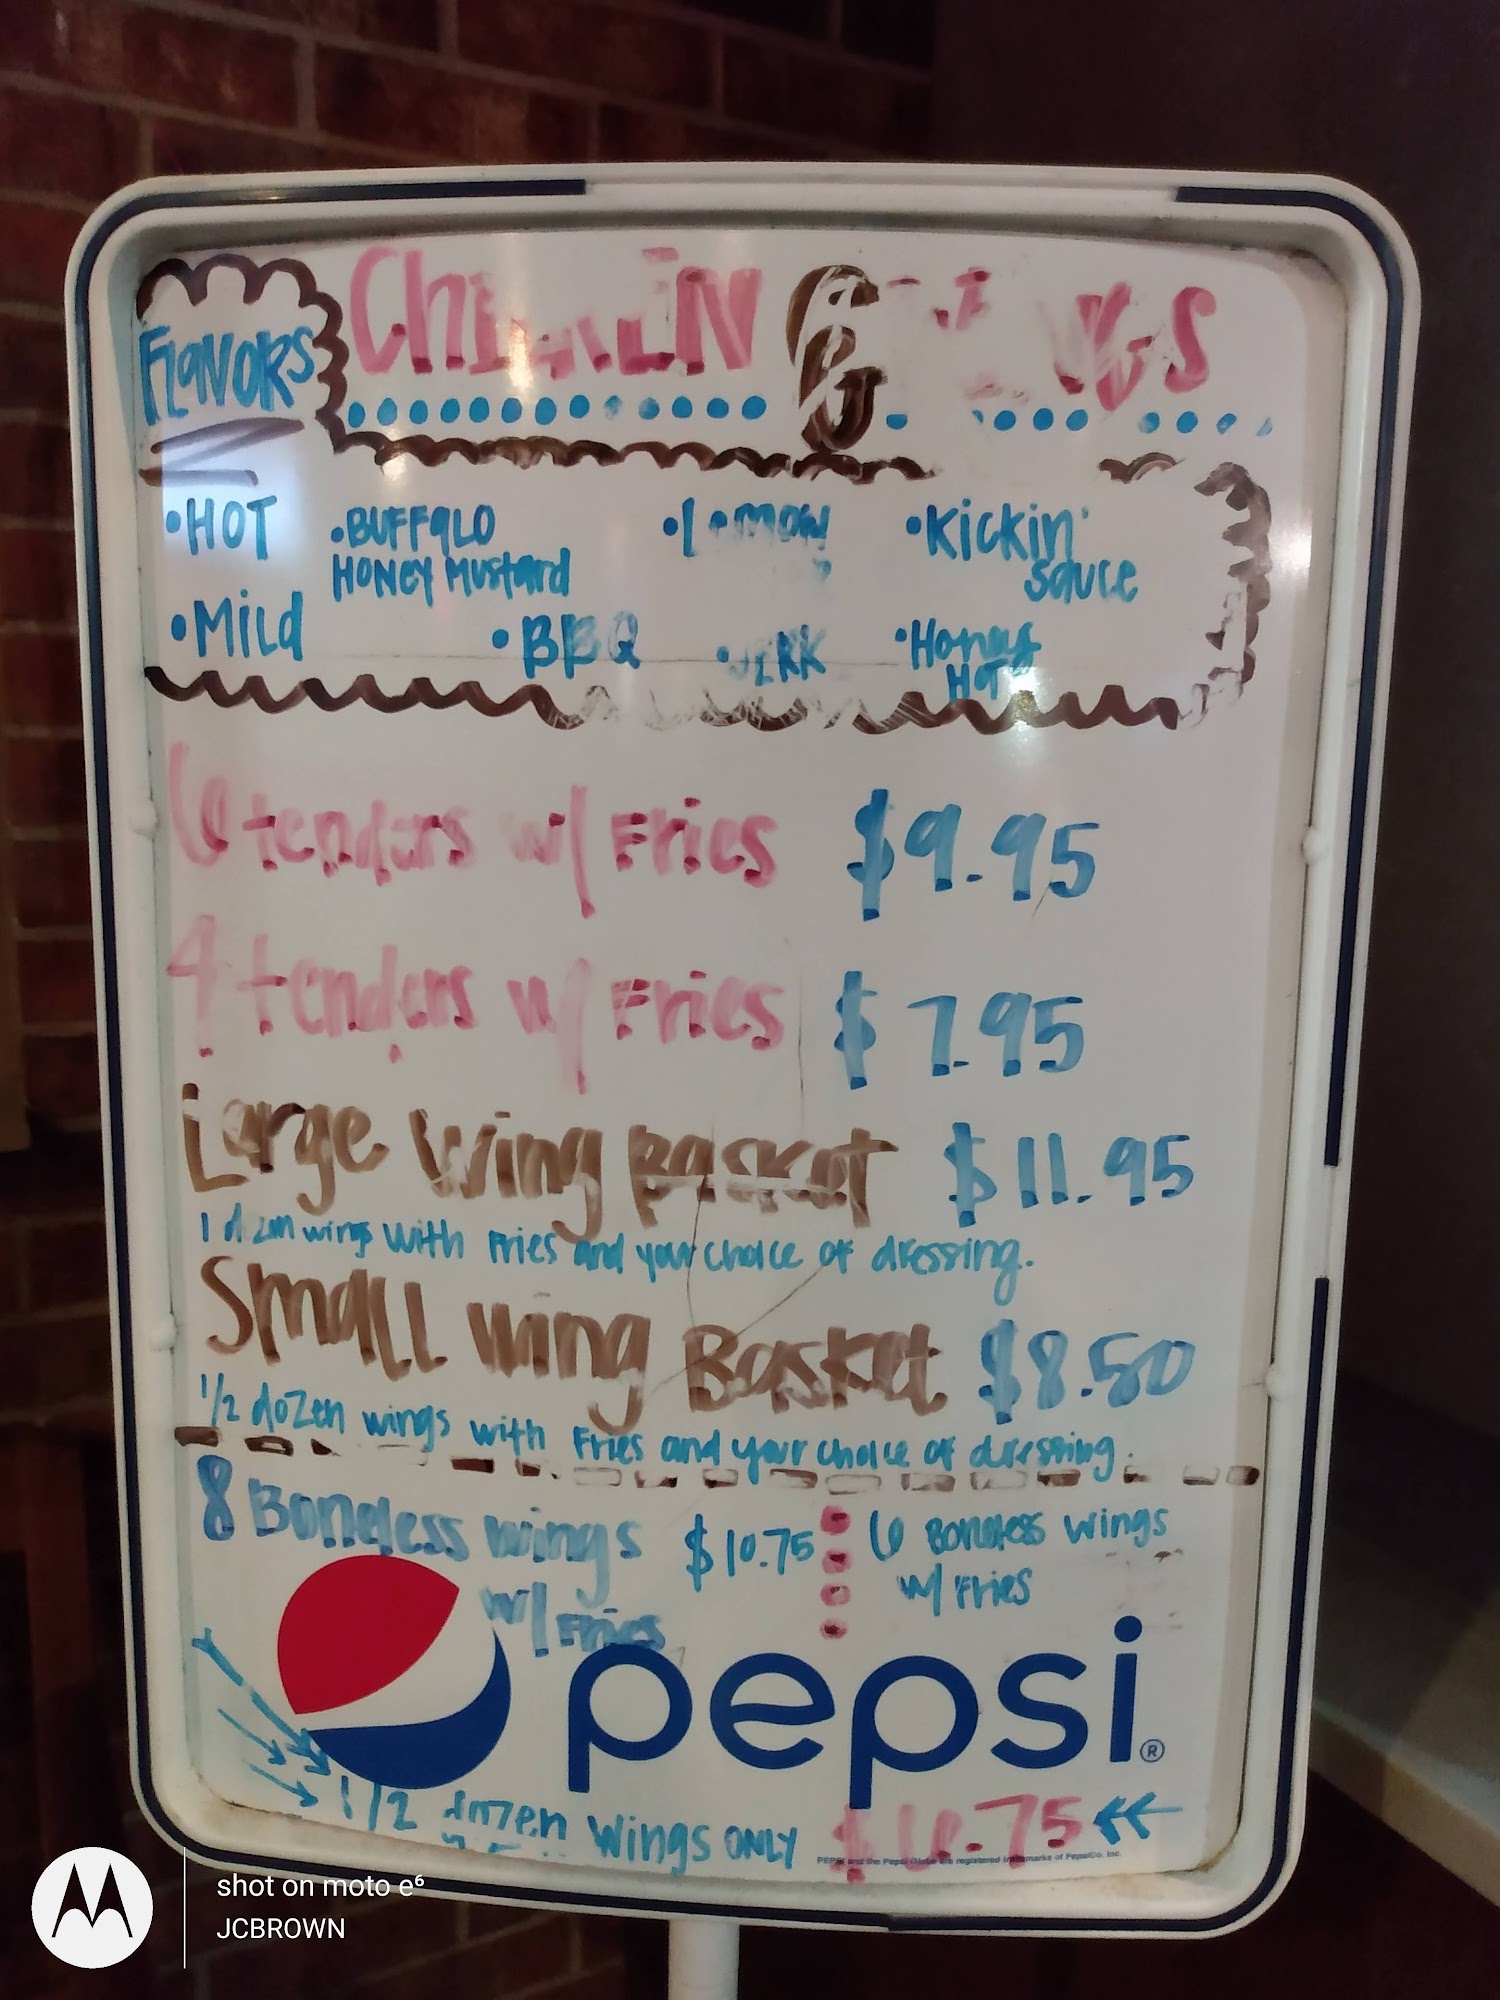 Flavors
Chicken & Wings
• HOT
• BUFFALO
HONEY Mustard
• Kickin'
Sauce
• Mild
• BBQ
• JERK
• Honey
HOT
6 tenders w/ Fries $9.95
4 tenders w/ Fries $7.95
Large Wing Basket $11.95
1 dozen wings with Fries and your choice of dressing.
Small Wing Basket $8.50
1/2 dozen wings with Fries and your choice of dressing.
8 Boneless wings $10.75
w/ Fries
6 Boneless wings
w/ Fries
pepsi®
1/2 dozen Wings ONLY $6.75
PEPSI and the Pepsi Globe are registered trademarks of PepsiCo, Inc.
shot on moto e⁶
JCBROWN